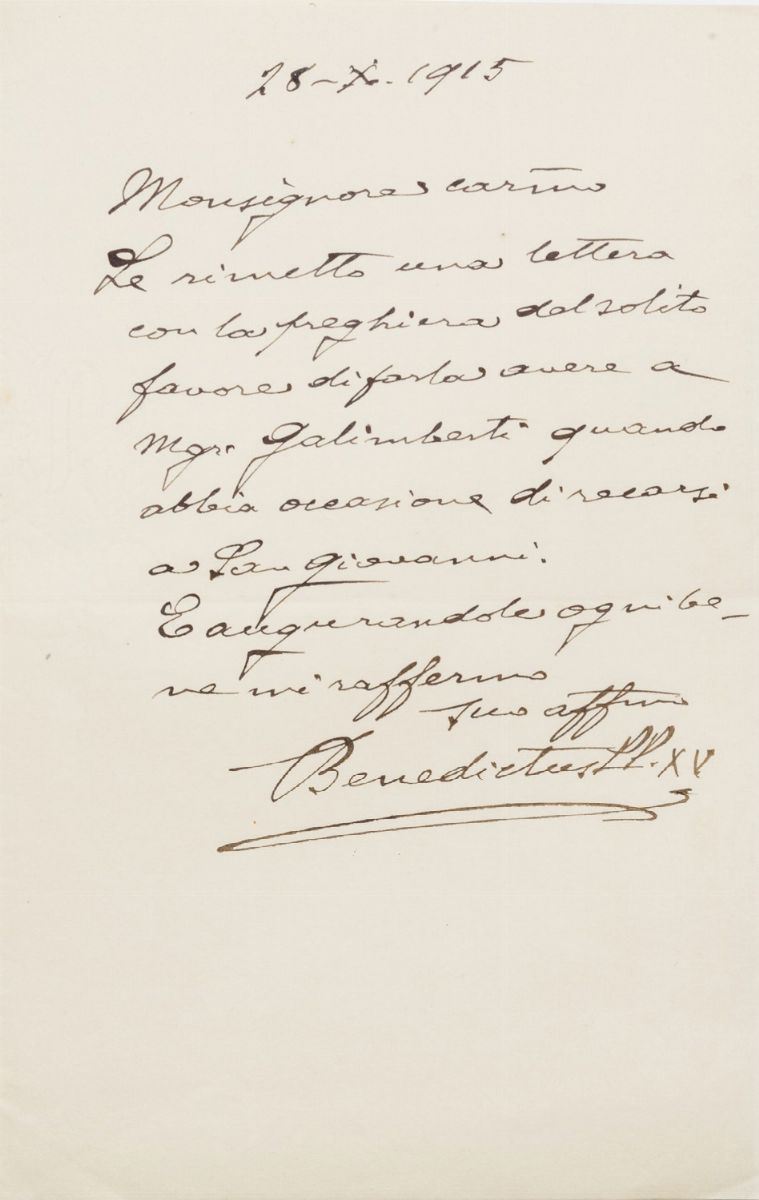 28-X-1915
Monsignore carmo
Le rimetto una lettera
con la preghiera del solito
favore di farla avere a
Mgr. Galimberti quando
abbia occasione di recarsi
a San Giovanni.
E augurandole ogni be-
ne mi raffermo
suo affmo
Benedictus PP. XV